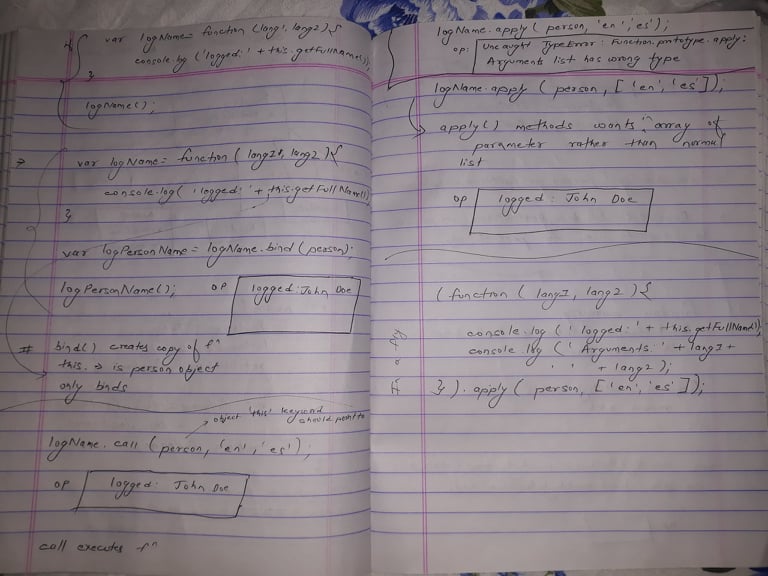 var logName = function (lang1, lang2) {
console.log ('logged:' + this.getFullName());
}
logName();
var logName = function (lang1, lang2) {
console.log( 'logged:' + this.getFullName())
}
var logPersonName = logName.bind (person);
logPersonName();
op
logged: John Doe
# bind() creates copy of fⁿ
this. → is person object
only binds
object 'this' keyword
should point to
logName.call (person, 'en', 'es');
op
logged: John Doe
call executes fⁿ
logName.apply (person, 'en', 'es');
op:
Uncaught TypeError: Function.prototype.apply:
Arguments list has wrong type
logName.apply (person, ['en', 'es']);
apply() methods wants array of
parameter rather than normal
list
op
logged: John Doe
(function (lang1, lang2) {
console.log (' logged:' + this.getFullName());
console.log ('Arguments:' + lang1 +
' ' + lang2);
}).apply (person, ['en', 'es']);